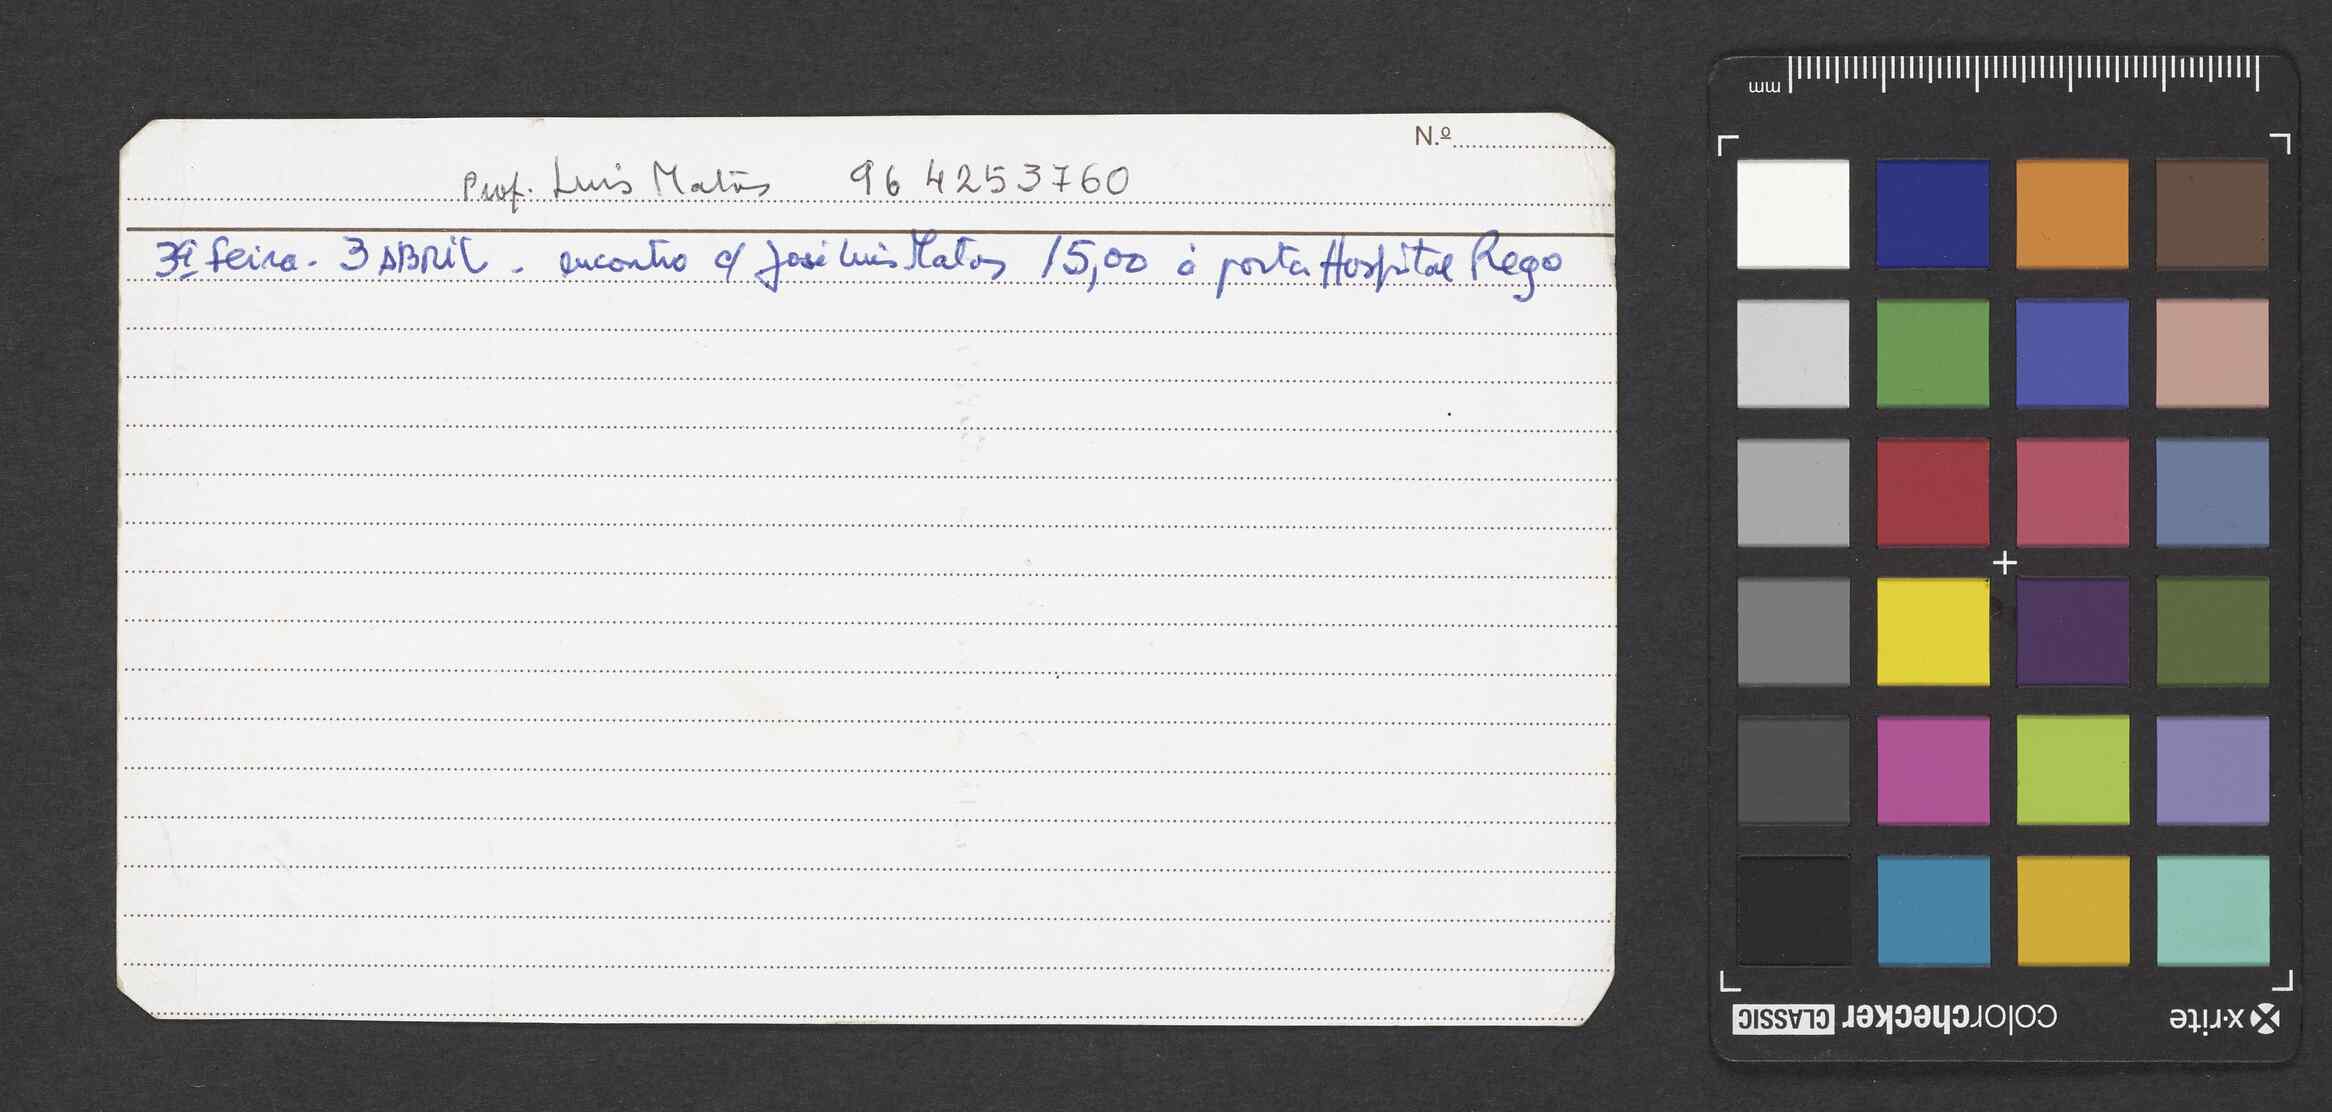 N.º
Prof. Luis Matos 96 4253760
3ª feira - 3 ABRIL - encontro c/ José Luis Matos 15,00 à porta Hospital Rego
mm
colorchecker CLASSIC
x-rite